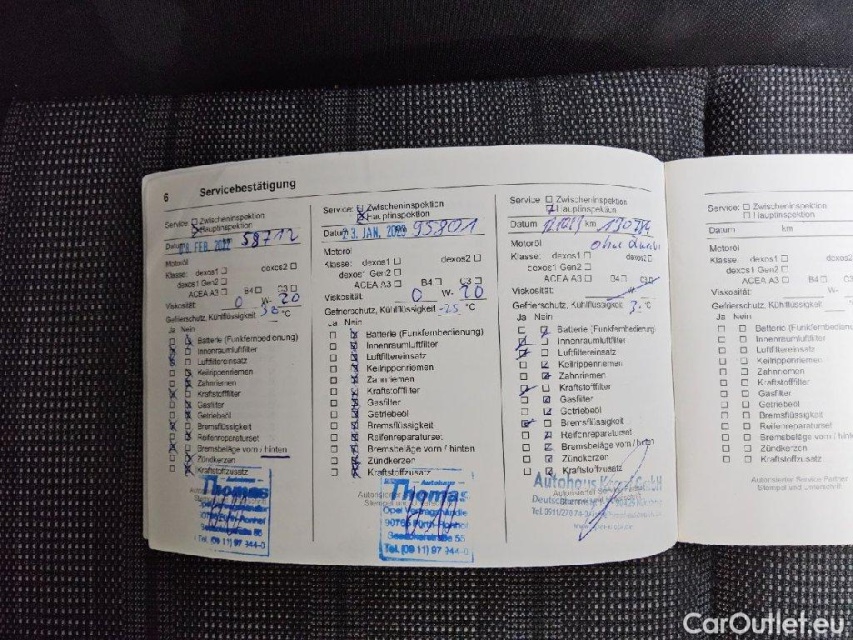 6 Servicebestätigung
Service: Zwischeninspektion
Hauptinspektion
Datum 08. FEB. 2022 58712
Motoröl
Klasse: dexos1 dexos2
dexos1 Gen2
ACEA A3 B4 C3
Viskosität: 0 W- 20
Gefrierschutz, Kühlflüssigkeit °C
Ja Nein
Batterie (Funkfernbedienung)
Innenraumluftfilter
Luftfiltereinsatz
Keilrippenriemen
Zahnriemen
Kraftstofffilter
Gasfilter
Getriebeöl
Bremsflüssigkeit
Reifenreparaturset
Bremsbeläge vorn / hinten
Zündkerzen
Kraftstoffzusatz
Autohaus
Thomas
Tel. (09 11) 97 344-0
Service: Zwischeninspektion
Hauptinspektion
Datum 23. JAN. 95801
Motoröl
Klasse: dexos1 dexos2
dexos1 Gen2
ACEA A3 B4 C3
Viskosität: 0 W- 20
Gefrierschutz, Kühlflüssigkeit -25 °C
Ja Nein
Batterie (Funkfernbedienung)
Innenraumluftfilter
Luftfiltereinsatz
Keilrippenriemen
Zahnriemen
Kraftstofffilter
Gasfilter
Getriebeöl
Bremsflüssigkeit
Reifenreparaturset
Bremsbeläge vorn / hinten
Zündkerzen
Kraftstoffzusatz
Autohaus
Thomas
Opel Vertragshändler
Tel. (09 11) 97 344-0
Service: Zwischeninspektion
Hauptinspektion
Datum km
Motoröl ohne
Klasse: dexos1 dexos2
dexos1 Gen2
ACEA A3 B4 C3
Viskosität: W-
Gefrierschutz, Kühlflüssigkeit °C
Ja Nein
Batterie (Funkfernbedienung)
Innenraumluftfilter
Luftfiltereinsatz
Keilrippenriemen
Zahnriemen
Kraftstofffilter
Gasfilter
Getriebeöl
Bremsflüssigkeit
Reifenreparaturset
Bremsbeläge vorn / hinten
Zündkerzen
Kraftstoffzusatz
Autohaus GmbH
Service: Zwischeninspektion
Hauptinspektion
Datum km
Motoröl
Klasse: dexos1
dexos1 Gen2
ACEA A3 B4
Viskosität: W-
Gefrierschutz, Kühlflüssigkeit
Ja Nein
Batterie (Funkfernbedienung
Innenraumluftfilter
Luftfiltereinsatz
Keilrippenriemen
Zahnriemen
Kraftstofffilter
Gasfilter
Getriebeöl
Bremsflüssigkeit
Reifenreparaturset
Bremsbeläge vorn /
Zündkerzen
Kraftstoffzusatz
Autorisierter Service Partner
Stempel und Unterschrift
CarOutlet.eu